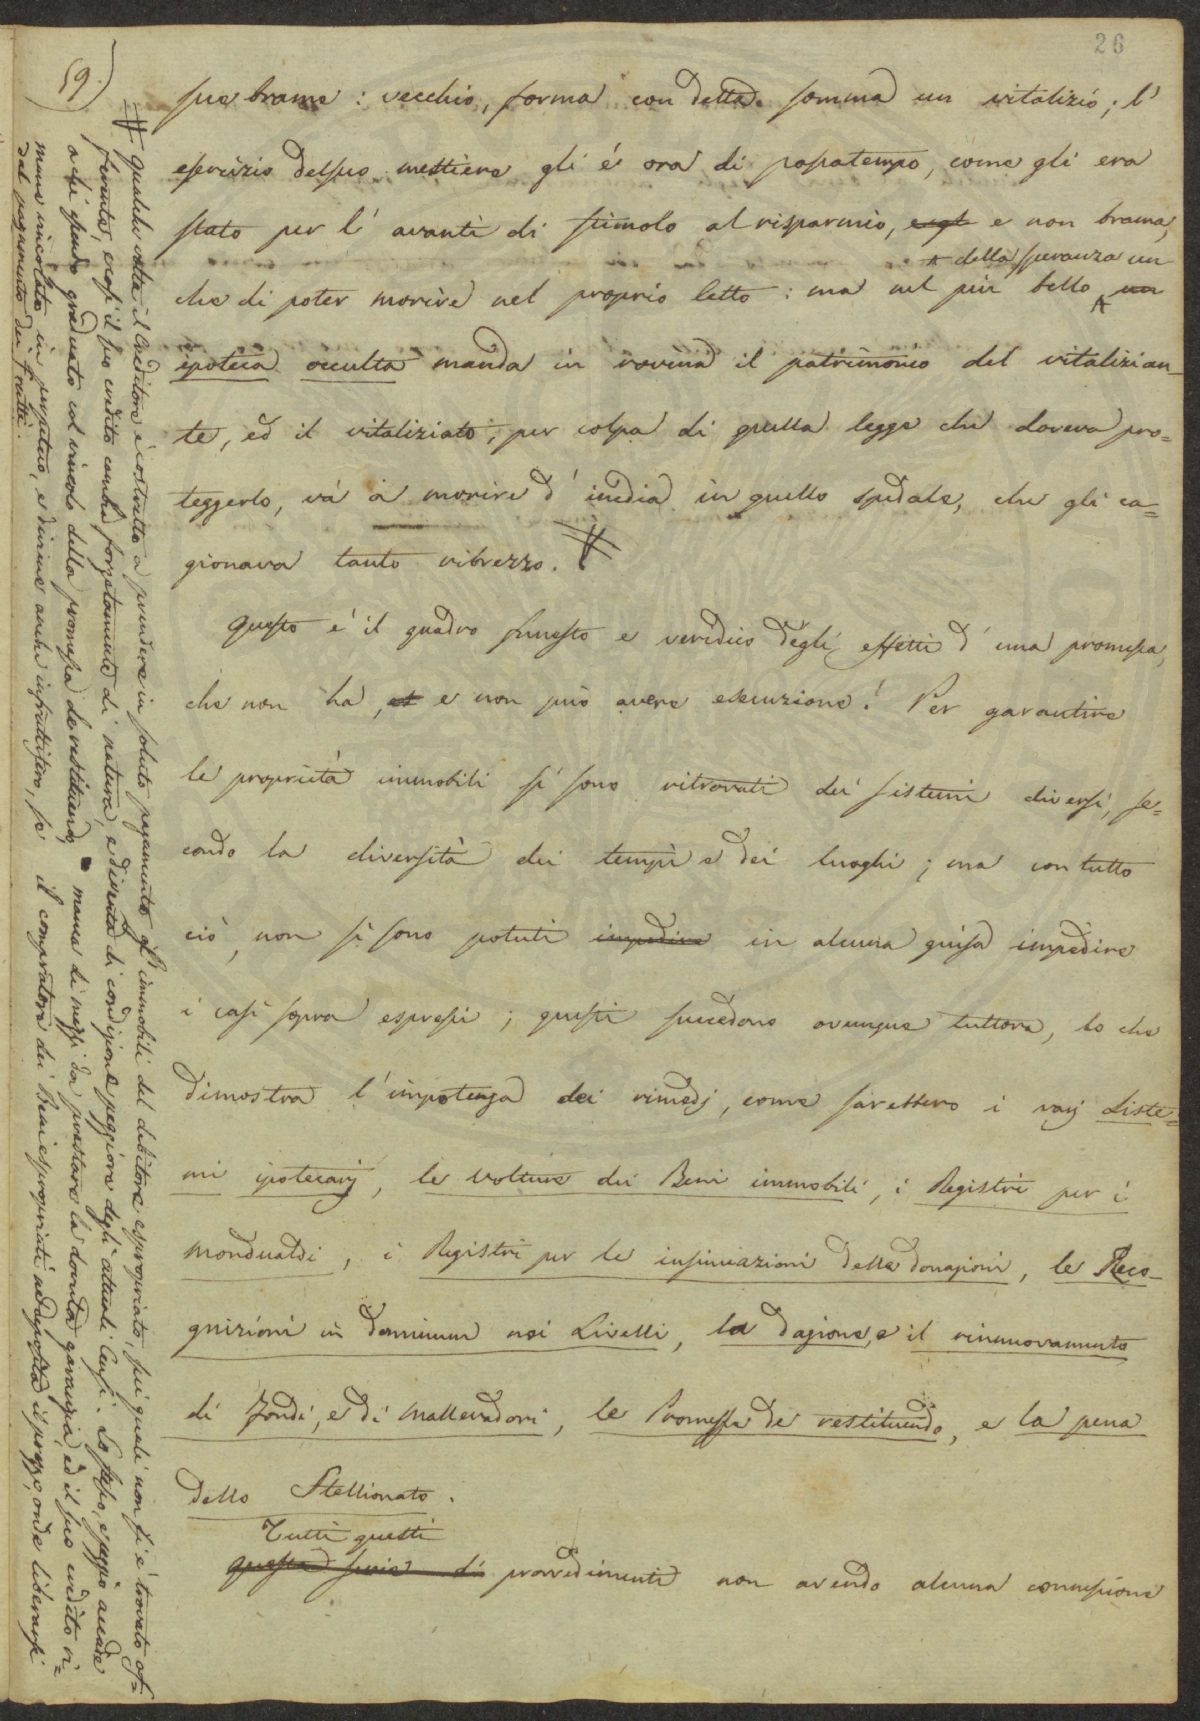 26
59.)
sue brame: vecchio, forma con detta somma un vitalizio; l'
esercizio del suo mestiere gli è ora di passatempo, come gli era
stato per l'avanti di stimolo al risparmio, e non brama,
della speranza un
che di poter morire nel proprio letto: ma nel più bello un
ipoteca occulta manda in rovina il patrimonio del vitalizian-
te, ed il vitaliziato, per colpa di quella legge che doveva pro=
teggerlo, và a morire d'inedia in quello spedale, che gli ca=
gionava tanto ribrezzo. #
Questo è il quadro funesto e veridico degli effetti d'una promessa,
che non ha, et e non può avere esecuzione! Per garantire
le proprietà immobili si sono ritrovati dei sistemi diversi, se=
condo la diversità dei tempi e dei luoghi; ma con tutto
ciò, non si sono potuti impedire in alcuna guisa impedire
i casi sopra espressi; questi succedono ovunque tuttora, lo che
dimostra l'impotenza dei rimedj, come sarebbero i varj Siste=
mi ipotecarj, le Volture dei Beni immobili, i Registri per i
Mondualdi, i Registri per le insinuazioni delle donazioni, le Reco-
gnizioni in dominum nei Livelli, la dazione, e il rinnuovamento
di Fondi, e di Mallevadori, le Promesse de restituendo, e la pena
dello Stellionato.
Tutti questi
questa serie di provvedimenti non avendo alcuna connessione
# Qualche volta il Creditore è costretto a prendere in soluto pagamento gl'immobili del debitore espropriato, sui quali non si è trovato of=
ferente, così il suo credito cambia forzatamente di natura, e diventa di condizione peggiore degli attuali Censi. Lo stesso, e peggio accade
a chi essendo graduato col vincolo della promessa de restituendo, manca di mezzi da prestare la dovuta garanzia, ed il suo credito ri=
mane vincolato in perpetuo, e diviene anche infruttifero, se il compratore dei Beni espropriati ne deposita il prezzo, onde liberarsi
dal pagamento dei frutti.